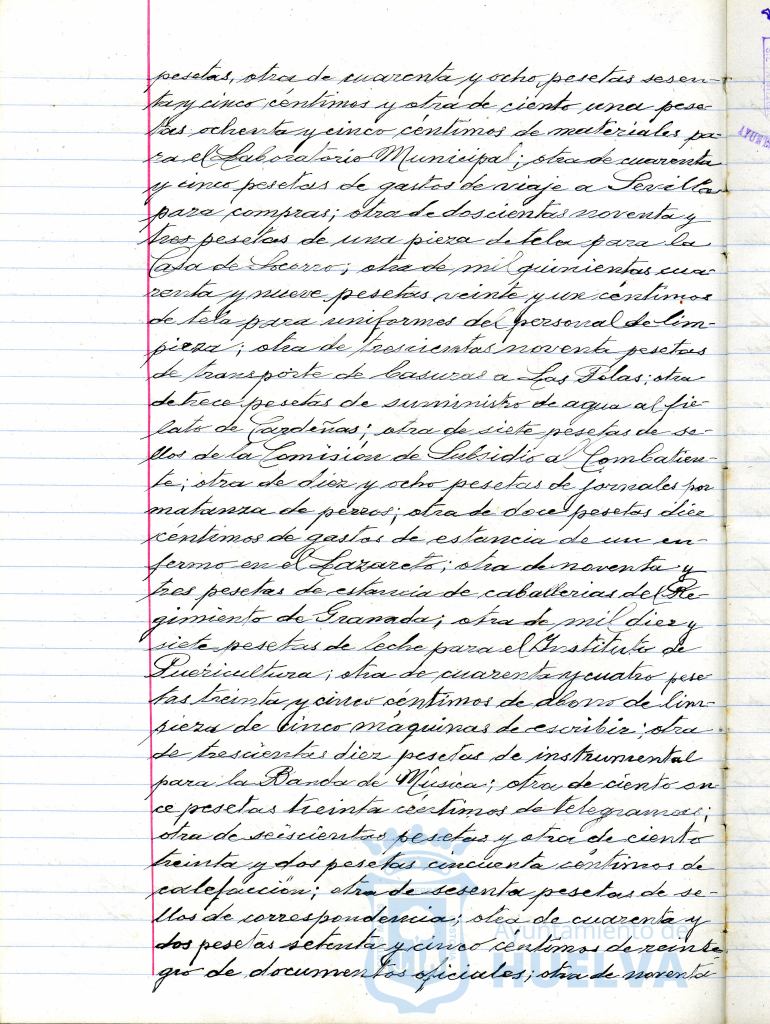 pesetas, otra de cuarenta y ocho pesetas sesen-
ta y cinco céntimos y otra de ciento una pese-
tas ochenta y cinco céntimos de materiales pa-
ra el Laboratorio Municipal; otra de cuarenta
y cinco pesetas de gastos de viaje a Sevilla
para compras; otra de doscientas noventa y
tres pesetas de una pieza de tela para la
Casa de Socorro; otra de mil quinientas cua-
renta y nueve pesetas veinte y un céntimos
de tela para uniformes del personal de lim-
pieza; otra de trescientas noventa pesetas
de transporte de basuras a Las Tilas; otra
de trece pesetas de suministro de agua al fie-
lato de Cardeñas; otra de siete pesetas de se-
llos de la Comisión de Subsidio al Combatien-
te; otra de diez y ocho pesetas de jornales por
matanza de perros; otra de doce pesetas diez
céntimos de gastos de estancia de un en-
fermo en el Lazareto; otra de noventa y
tres pesetas de estancia de caballerias del Re-
gimiento de Granada; otra de mil diez y
siete pesetas de leche para el Instituto de
Puericultura; otra de cuarenta y cuatro pese
tas treinta y cinco céntimos de abono de lim-
pieza de cinco máquinas de escribir; otra
de trescientas diez pesetas de instrumental
para la Banda de Música; otra de ciento on-
ce pesetas treinta céntimos de telegramas;
otra de seiscientas pesetas y otra de ciento
treinta y dos pesetas cincuenta céntimos de
calefacción; otra de sesenta pesetas de se-
llos de correspondencia; otra de cuarenta y
dos pesetas setenta y cinco céntimos de reinte-
gro de documentos oficiales; otra de noventa
Ayuntamiento de
HUELVA